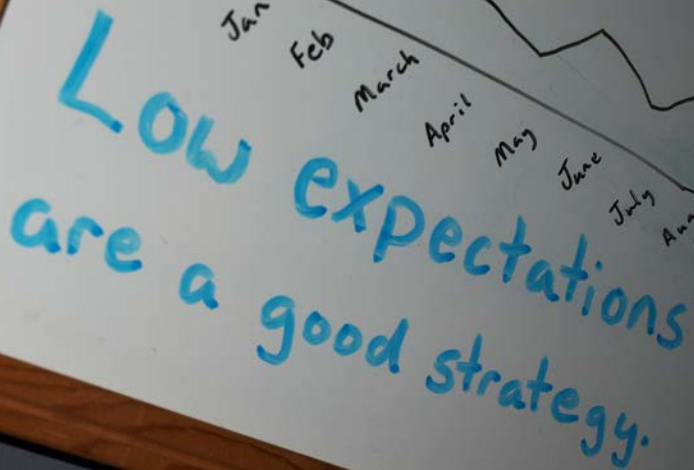 Jan Feb March April May June July
Low expectations
are a good strategy.